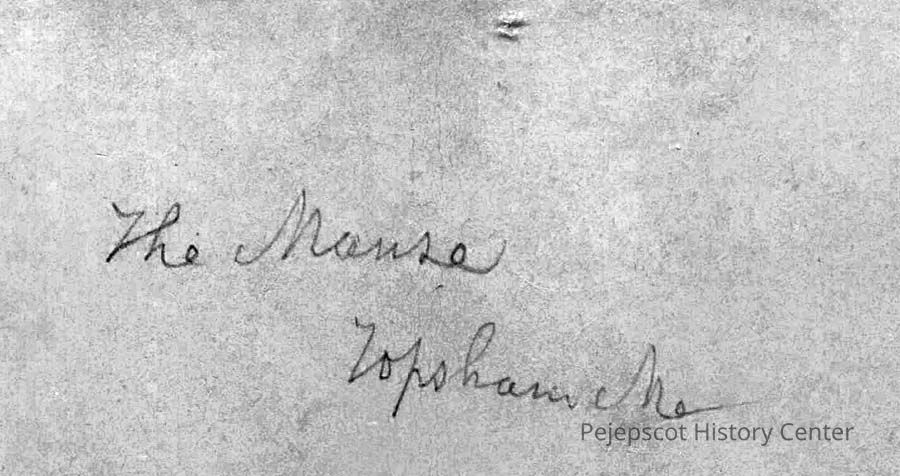 The Manse
Topsham Me
Pejepscot History Center